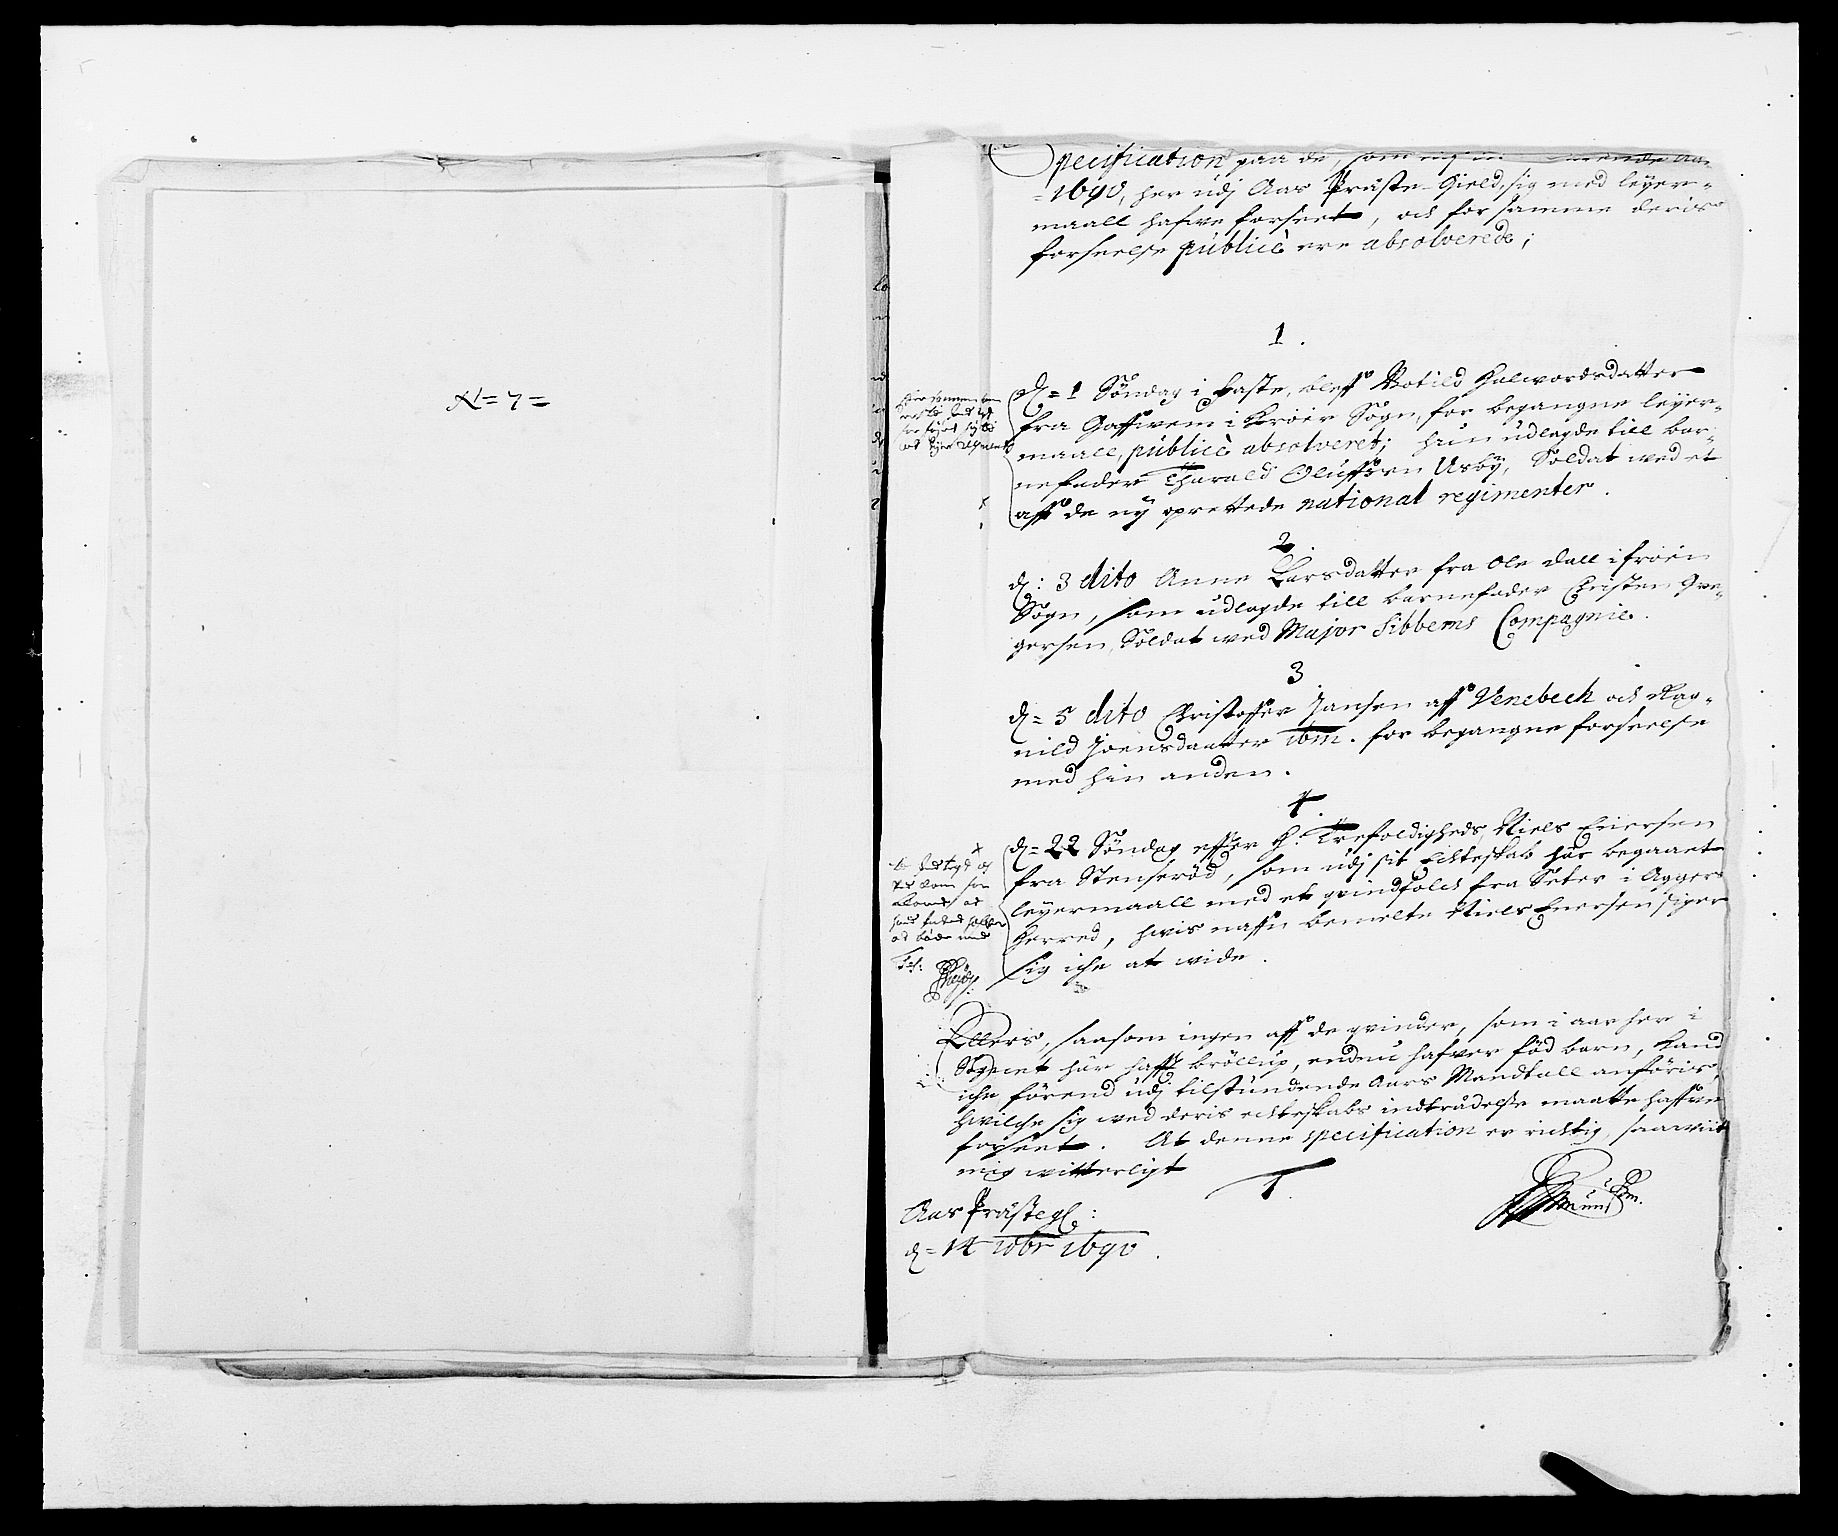 N = 7 =
Specification paa de, som
1690, her udj Aas Præste-Gield, sig med leyer-
maall hafve forseet, och for samme deris
forseelse publicè ere absolverede;
1.
d = 1 Søndag i Faste, bleff Botild Halvordsdatter
fra i Kroer Sogn, for begangne leyer-
maall, publicè absolveret; hun udlagde till bar-
nefader Tharald Oluffsøn Usby, Soldat ved et
aff de ny oprettede national regimenter.
2.
d: 3 dito Anne Larsdatter fra Ole Dall i froen
Sogn, som udlagde till barnefader Christen Gre-
gersen, Soldat ved Major Sibberns Compagnie.
3
d = 5 dito Christoffer Jansen aff Venebech och Rag-
nild Joensdaatter ibm. for begangne forseelse
med hin anden.
4.
d = 22 Søndag effter H: Trefoldigheds, Niels Enersen
fra Stenserød, som udj sit Echteskab har begaaet
leyermaall med et qvindfolch fra Seter i Agger
Herred, hvis naffn bemelte Niels Enersen siger
sig iche at vide.
Ellers, saasom ingen aff de qvinder, som i aar her i
Sognet har hafft bröllup, endnu hafver fød barn, kand
iche förend udj tilstundende Aars Mandtall anföris,
hvilche sig ved deris echteskabs indtrædelse maatte haffve
forseet. At denne specification er richtig, saavit
mig witterligt T.
Aas Præstegl:
d = 14 10br 1690.